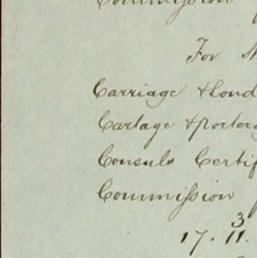 Commission
For
Carriage & Lond
Cartage & porter
Consuls Certif
Commission
3
17. 11.